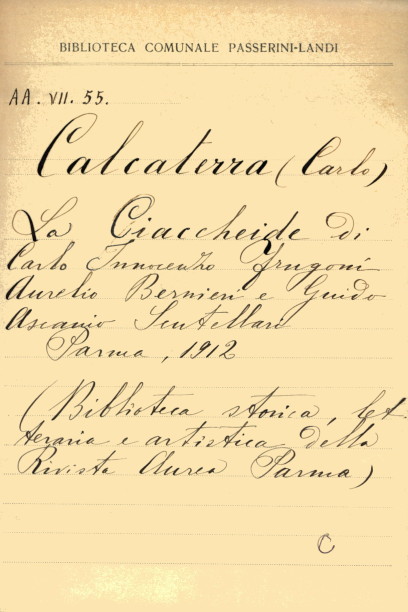 BIBLIOTECA COMUNALE PASSERINI-LANDI
AA. VII. 55.
Calcaterra (Carlo)
La Ciaccheide di
Carlo Innocenzo Frugoni
Aurelio Bernieri e Guido
Ascanio Scutellari
Parma, 1912
(Biblioteca storica, let
teraria e artistica della
Rivista Aurea Parma)
C